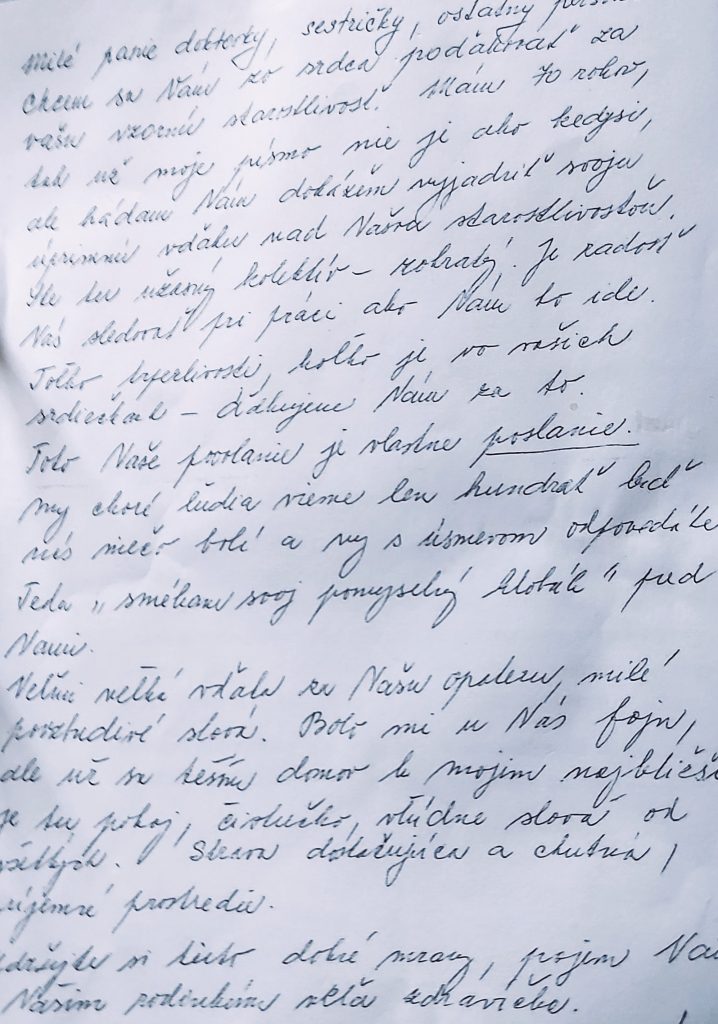 Milé panie doktorky, sestričky, ostatný
chcem sa Vám zo srdca poďakovať za
vašu vzornú starostlivosť. Mám 70 rokov,
tak už moje písmo nie je ako kedysi,
ale hádam Vám dokážem vyjadriť svoju
úprimnú vďaku nad Vašou starostlivosťou.
Ste tu úžasný kolektív – zohratý. Je radosť
Vás sledovať pri práci ako Vám to ide.
Toľko trpezlivosti, koľko je vo vašich
srdiečkach – Ďakujeme Vám za to.
Toto Vaše povolanie je vlastne poslanie.
my chorí ľudia vieme len hundrať keď
nás niečo bolí a vy s úsmevom odpovedáte
Teda „smekám svoj pomyselný klobúk" pred
Vami.
Veľmi veľká vďaka za Vašu opateru, milé
povzbudivé slová. Bolo mi u Vás fajn,
ale už sa teším domov k mojim najbližší
je tu pokoj, čistučko, vľúdne slová od
všetkých. Strava dostačujúca a chutná,
ríjemné prostredie.
držujte si tieto dobré mravy, prajem
Vašim rodinkám veľa zdravíčka.